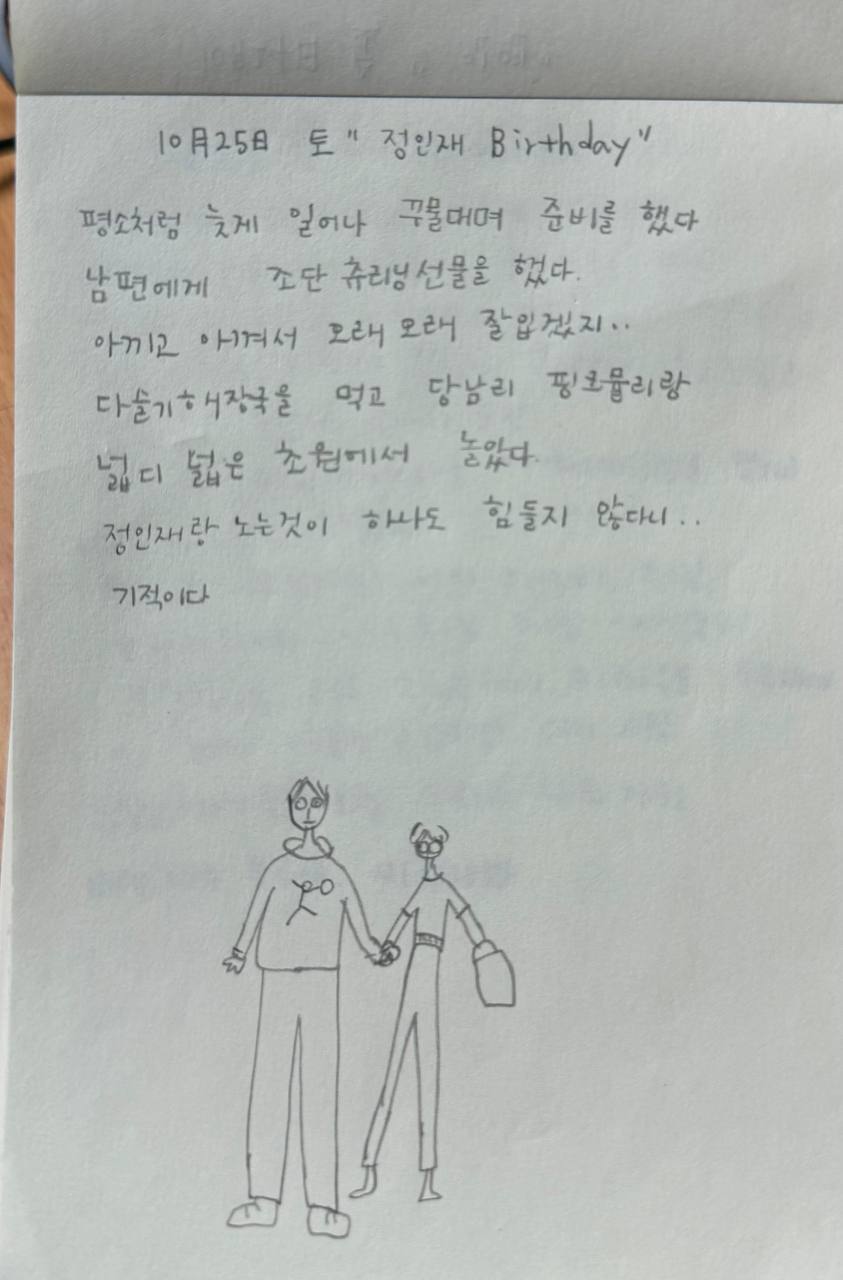 10月25日 토 " 정인재 Birthday"
평소처럼 늦게 일어나 꾸물대며 준비를 했다
남편에게 조단 츄리닝선물을 했다.
아끼고 아껴서 오래오래 잘입겠지..
다슬기해장국을 먹고 당남리 핑크뮬리랑
넓디 넓은 초원에서 놀았다.
정인재랑 노는것이 하나도 힘들지 않다니..
기적이다